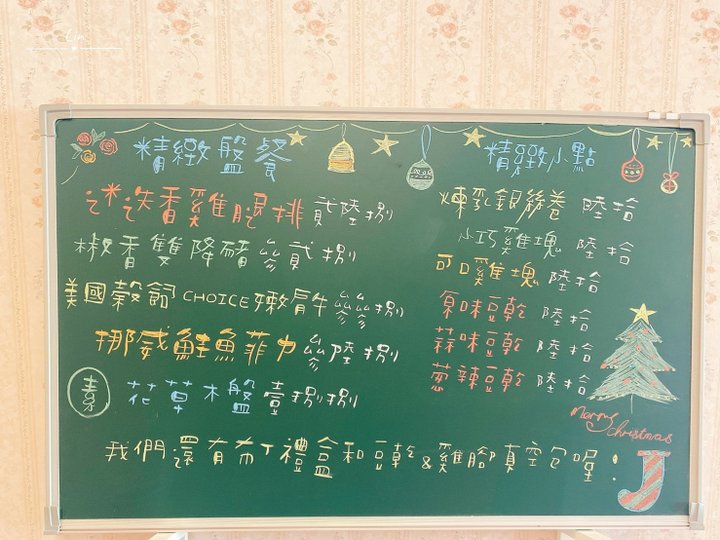 Lin
精緻盤餐
迷迭香雞腿排 貳陸捌
椒香雙降豬 參貳捌
美國穀飼CHOICE嫩肩牛 參參捌
挪威鮭魚菲力 參陸捌
素 花草木盤 壹捌捌
精緻小點
煉乳銀絲卷 陸拾
小巧雞塊 陸拾
可口雞塊 陸拾
原味豆乾 陸拾
蒜味豆乾 陸拾
蔥辣豆乾 陸拾
Merry Christmas
我們還有布丁禮盒和豆乾&雞腳真空包喔!
J